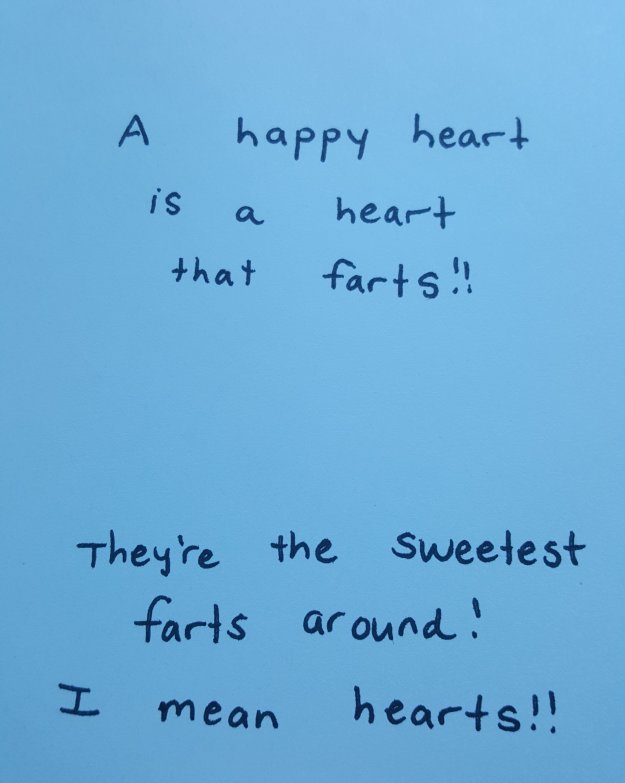 A happy heart
is a heart
that farts!!
They're the sweetest
farts around!
I mean hearts!!